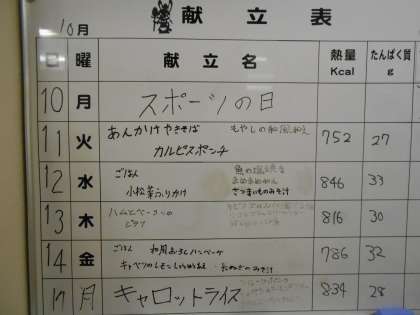 10月 献立表
日 曜 献立名 熱量 Kcal たんぱく質 g
10 月 スポーツの日
11 火 あんかけやきそば もやしの和風和え 752 27
カルピスポンチ
12 水 ごはん 魚の塩焼き 846 33
小松菜ふりかけ さつまいものみそ汁
13 木 ハムとベーコンの 816 30
ピラフ
14 金 ごはん 和風おろしハンバーグ 786 32
キャベツのレモンしょうゆあえ 長ねぎのみそ汁
17 月 キャロットライス 834 28